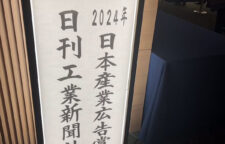 2024年
日本産業広告賞
日刊工業新聞社